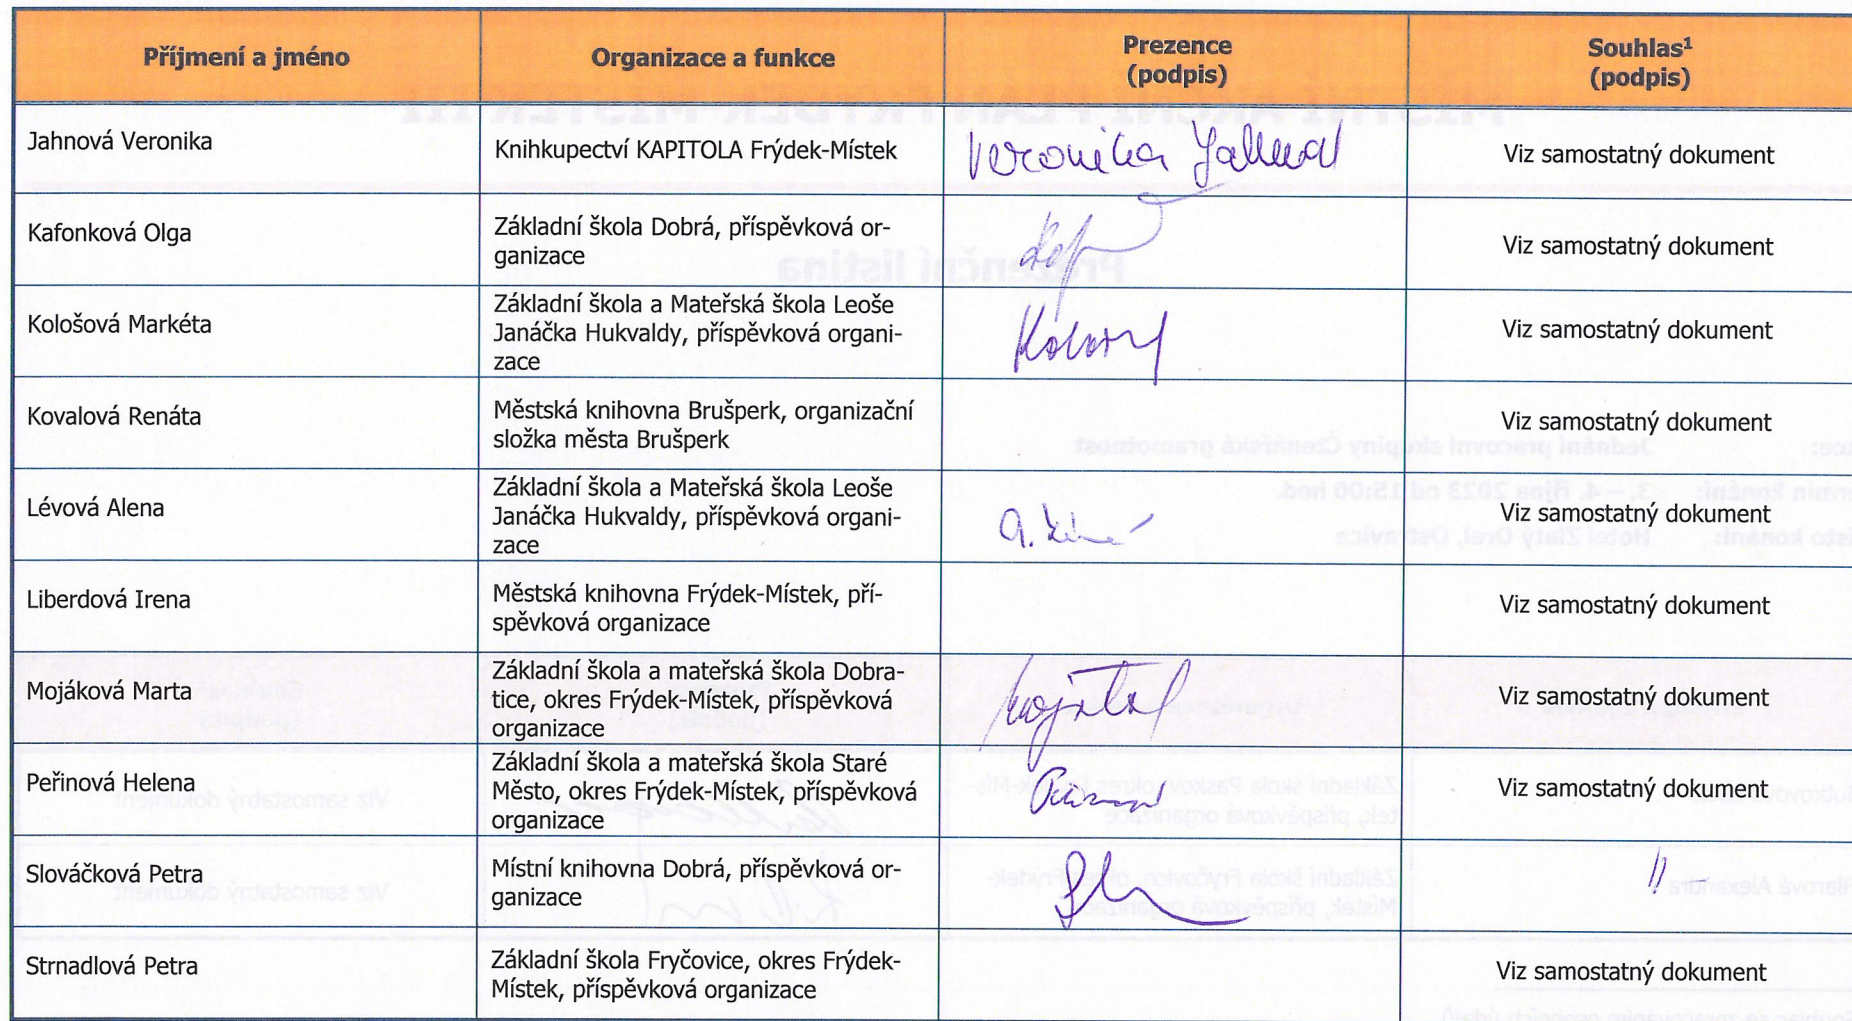 Příjmení a jméno
Organizace a funkce
Prezence
(podpis)
Souhlas¹
(podpis)
Jahnová Veronika
Knihkupectví KAPITOLA Frýdek-Místek
Veronika Jahnová
Viz samostatný dokument
Kafonková Olga
Základní škola Dobrá, příspěvková or-
ganizace
Viz samostatný dokument
Kološová Markéta
Základní škola a Mateřská škola Leoše
Janáčka Hukvaldy, příspěvková organi-
zace
Viz samostatný dokument
Kovalová Renáta
Městská knihovna Brušperk, organizační
složka města Brušperk
Viz samostatný dokument
Lévová Alena
Základní škola a Mateřská škola Leoše
Janáčka Hukvaldy, příspěvková organi-
zace
Viz samostatný dokument
Liberdová Irena
Městská knihovna Frýdek-Místek, pří-
spěvková organizace
Viz samostatný dokument
Mojáková Marta
Základní škola a mateřská škola Dobra-
tice, okres Frýdek-Místek, příspěvková
organizace
Viz samostatný dokument
Peřinová Helena
Základní škola a mateřská škola Staré
Město, okres Frýdek-Místek, příspěvková
organizace
Viz samostatný dokument
Slováčková Petra
Místní knihovna Dobrá, příspěvková or-
ganizace
Strnadlová Petra
Základní škola Fryčovice, okres Frýdek-
Místek, příspěvková organizace
Viz samostatný dokument